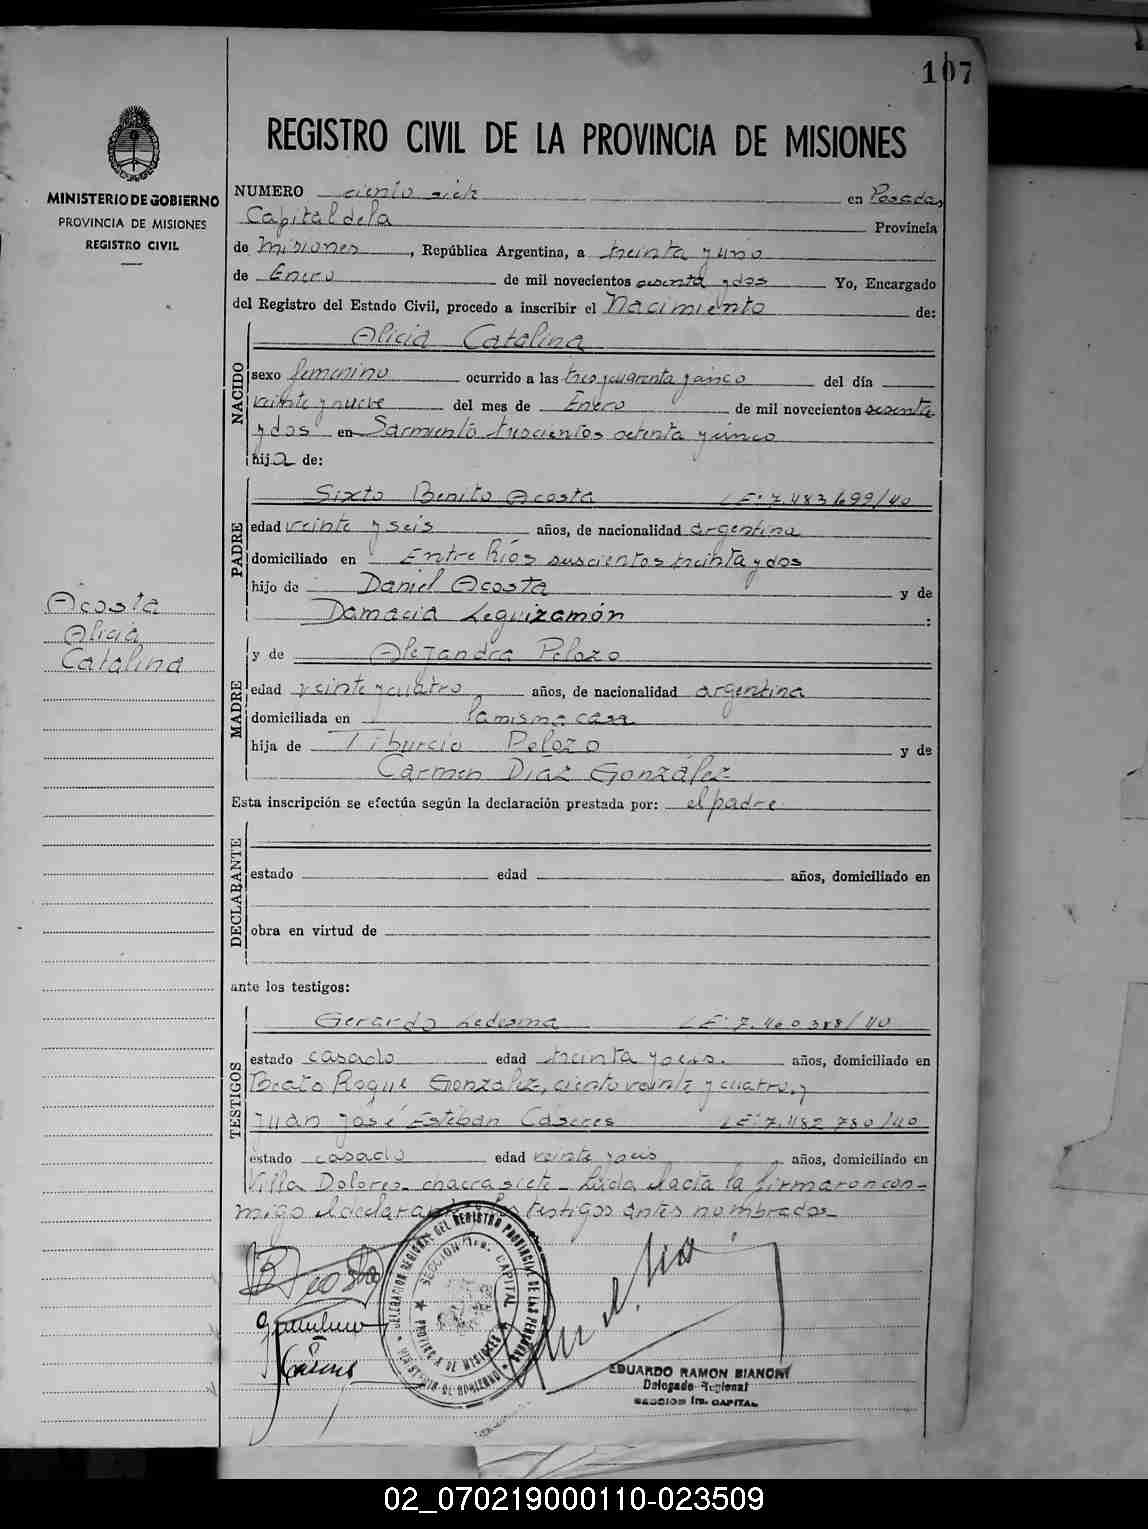 107
REGISTRO CIVIL DE LA PROVINCIA DE MISIONES
MINISTERIO DE GOBIERNO
PROVINCIA DE MISIONES
REGISTRO CIVIL
NUMERO ciento siete en Posadas,
Capital de la Provincia
de Misiones, República Argentina, a treinta y uno
de Enero de mil novecientos sesenta y dos Yo, Encargado
del Registro del Estado Civil, procedo a inscribir el Nacimiento de:
NACIDO
Alicia Catalina
sexo femenino ocurrido a las tres y cuarenta y cinco del día
veinte y nueve del mes de Enero de mil novecientos sesenta
y dos en Sarmiento trescientos setenta y cinco
hija de:
PADRE
Sixto Benito Acosta LE: 7.483.699/40
edad veinte y seis años, de nacionalidad argentina
domiciliado en Entre Ríos suscientos treinta y dos
hijo de Daniel Acosta y de
Damacia Leguizamón :
Acosta
Alicia
Catalina
MADRE
y de Alejandra Pelozo
edad veinte y cuatro años, de nacionalidad argentina
domiciliada en la misma casa
hija de Tiburcio Pelozo y de
Carmen Díaz González
Esta inscripción se efectúa según la declaración prestada por: el padre
DECLARANTE
estado edad años, domiciliado en
obra en virtud de
ante los testigos:
TESTIGOS
Gerardo Ledesma LE: 7.460.388/40
estado casado edad treinta y seis. años, domiciliado en
Beato Roque González, ciento veinte y cuatro, y
Juan José Esteban Caseres LE: 7.482.780/40
estado casado edad veinte y seis, años, domiciliado en
Villa Dolores chacra siete. Leída el acta la firmaron con-
migo el declarante testigos antes nombrados.
DELEGACION REGIONAL DEL REGISTRO PROVINCIAL DE LAS PERSONAS
SECCION 1ra. CAPITAL
PROVINCIA DE MISIONES
MINISTERIO DE GOBIERNO
Caseres
EDUARDO RAMON BIANCHI
Delegado Regional
SECCION 1ra. CAPITAL
02_070219000110-023509